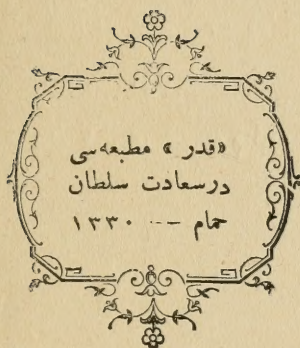 «قدر» مطبعه‌سی
درسعادت سلطان
حمام — ۱۳۳۰